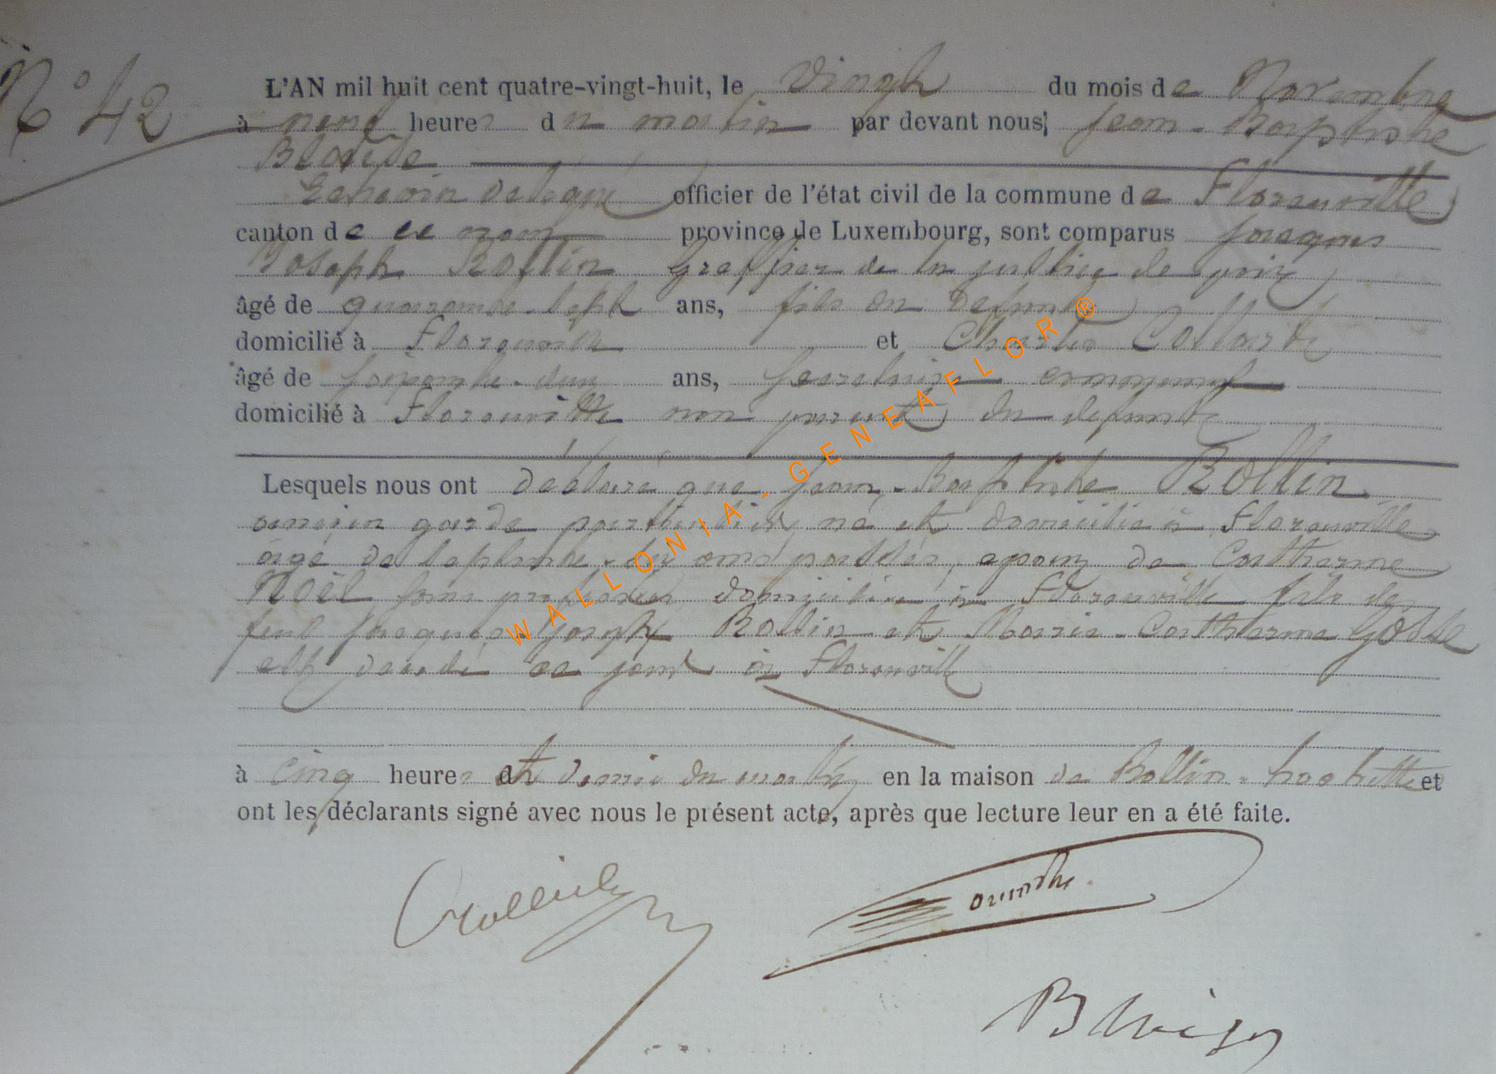 N° 42
L'AN mil huit cent quatre-vingt-huit, le Vingt du mois de Novembre
à neuf heures du matin par devant nous, Jean-Baptiste
Echevin délégué officier de l'état civil de la commune de Florenville
canton de ce nom province de Luxembourg, sont comparus Jacques
Joseph Rollin Greffier de la justice de paix,
âgé de quarante-sept ans, fils du défunt
domicilié à Florenville et Charles Collard
âgé de soixante-deux ans, secrétaire communal
domicilié à Florenville non parent du défunt
Lesquels nous ont déclaré que Jean-Baptiste Rollin
ancien garde particulier né et domicilié à Florenville
âgé de septante-dix ans passés, époux de Catherine
Noël sans profession domiciliée à Florenville fils de
feu Jacques Joseph Rollin et Marie-Catherine
est décédé ce jour à Florenville
à cinq heures et demie du matin en la maison de Rollin-hochette et
ont les déclarants signé avec nous le présent acte, après que lecture leur en a été faite.
WALLONIA-GENEAFLOR ®